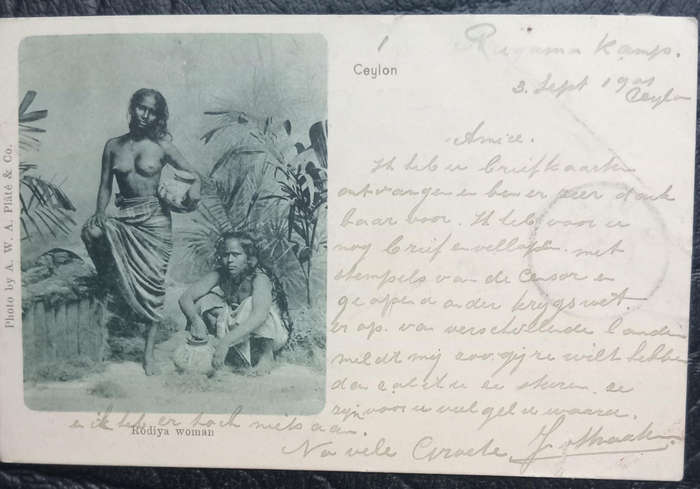 Photo by A. W. A. Plâté & Co.
Ceylon
Ragama Kamp.
3. Sept 1901
Ceylon
Amice.
Ik heb u briefkaarten
ontvangen en ben er zeer dank
baar voor. Ik heb voor u
nog brief envelloppen met
stempels van de Censor en
geopend onder krygswet
er op. van verschillende landen
meldt mij zoo gij ze wilt hebben
dan zal ik u ze sturen ze
zyn voor u veel geld waard.
en ik heb er toch niets aan.
Rodiya woman
Na vele Groete